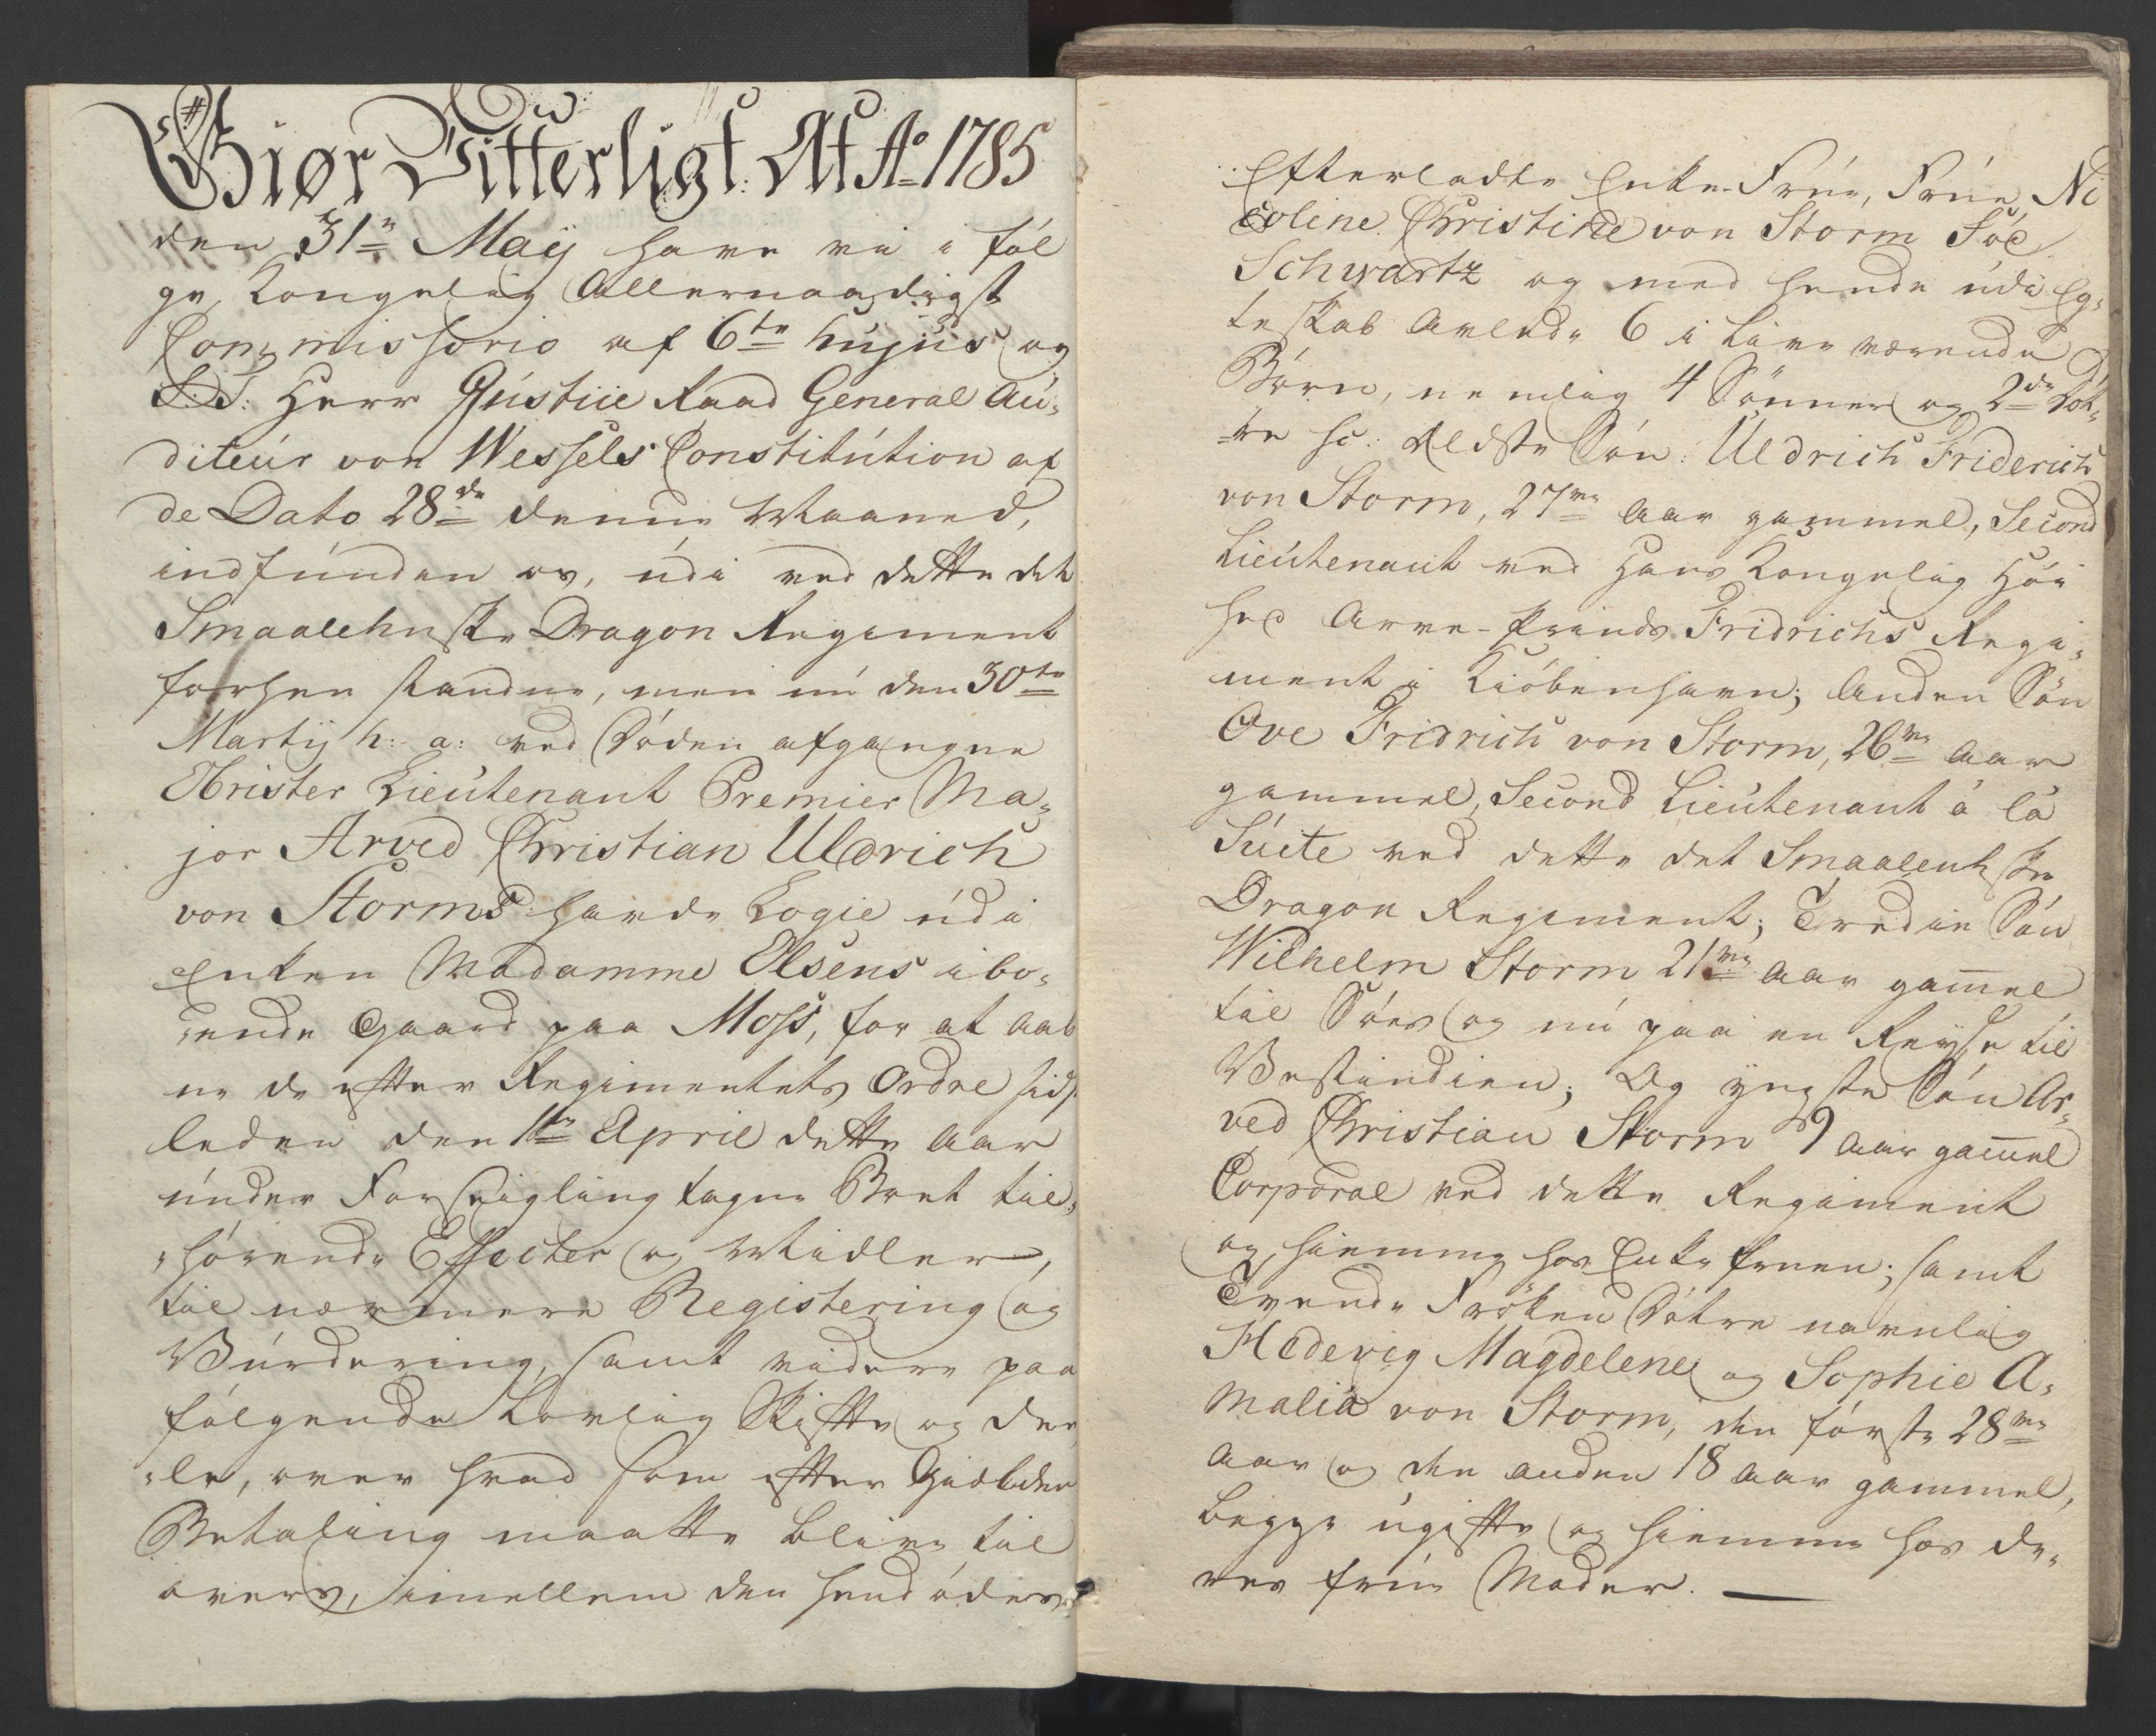 Giør Vitterligt: At Ao 1785
den 31te Maij have vi i føl
ge Kongelig Allernaadigst
Commissorio af 6te hujus og
S: T: Herr Justice Raad General Au-
diteur von Wessels Constitution af
de Dato 28de denne Maaned,
indfunden os, udi ved dette det
Smaalehnske Dragon Regiment
forhen staaende, men nu den 30te
Martij h: a: ved Døden afgangne
Obrister Lieutenant Premier Ma-
jor Arved Christian Uldrich
von Storms havde Logie udi
Enken Madamme Olsens ibo-
ende Gaard paa Moss, for at aab
ne de efter Regimentets Ordre sidst
leden den 1te April dette Aar
under Forseigling tagne Boet til-
hørende Effecter og Midler,
til nærmere Registering og
Vurdering, samt videre paa
følgende Lovlig Skifte og Dee
le, over hvad som efter Gieldens
Betaling maatte blive til
overs, imellem den hendødes
Efterladte Enke-Frue, Frue Ni
coline Christine von Storm Fød
Schwartz og med hende udi Eg-
teskab Avlede 6 i Live værende
Børn, nemlig 4 Sønner og 2de Døt-
re sc: Ældste Søn: Uldrich Friderich
von Storm, 27ve Aar gammel, Second
Lieutenant ved Hans Kongelig Høi
hed Arve-Prinds Fridrichs Regi-
ment i Kiøbenhavn; Anden Søn
Ove Fridrich von Storm, 26ve Aar
gammel, Second Lieutenant á la
Suite ved dette det Smaalenhske
Dragon Regiment; Tredie Søn
Wilhelm Storm 21ve Aar gam̄el
til Søes og nu paa en Reyse til
Vestindien; Og yngste Søn Ar-
ved Christian Storm 9 Aar gam̄el
Corporal ved dette Regiment
og hiemme hos Enke Fruen; samt
Tvende Frøken Døtre navnlig
Hedevig Magdelene og Sophie A-
malia von Storm, den første 28ve
Aar og den anden 18 Aar gammel,
begge ugifte og hiemme hos de-
res Frue Moder. —